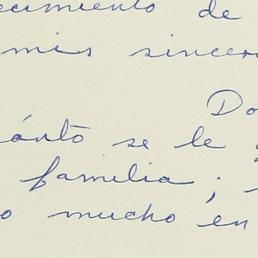 ecimiento de
mis sincer
Do
ánto se le
familia;
o mucho en